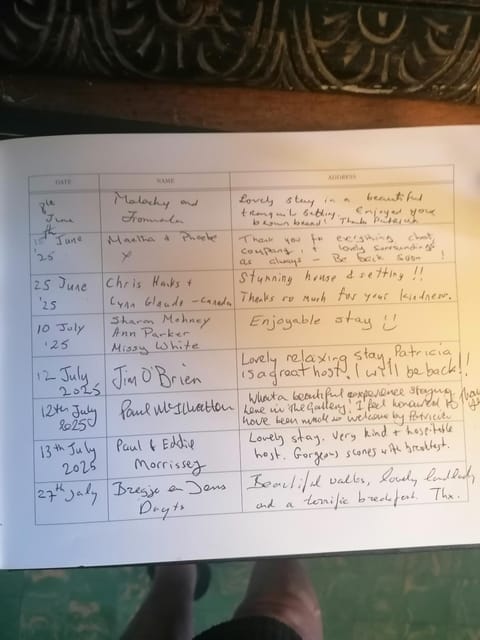 DATE NAME ADDRESS
8th June
Malachy and
Fionnuala
Lovely stay in a beautiful
tranquil setting. Enjoyed your
brown bread! Thanks Patricia
June '25
Martha & Phoebe
x
Thank you for everything chat,
company & lovely surroundings
as always - Be back soon!
25 June '25
Chris Hanks +
Lynn Gleade - Canada
Stunning house & setting!!
Thanks so much for your kindness.
10 July '25
Sharon Mohney
Ann Parker
Missy White
Enjoyable stay
12 July 2025
Jim O'Brien
Lovely relaxing stay, Patricia
is a great host, I will be back!!
12th July 2025
Paul
What a beautiful experience staying
here in The Gallery! I feel honoured to
have been made so welcome by Patricia
13th July 2025
Paul & Eddie
Morrissey
Lovely stay. Very kind + hospitable
host. Gorgeous scones with breakfast.
27th July
Bregje en Jens
Duyts
Beautiful walks, lovely landlady
and a terrific breakfast. Thx.